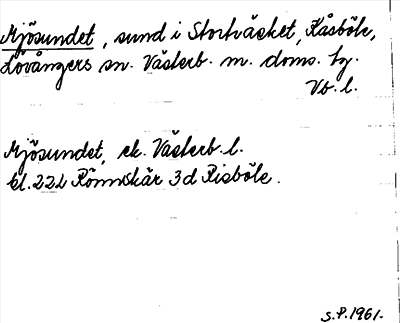 Mjösundet, sund i Storträsket, Kåsböle,
Lövångers sn. Västerb. m. doms. tg.
Vb. l.
Mjösundet, ek. Västerb. l.
bl. 22L Rönnskär 3d Risböle.
S.P. 1961.